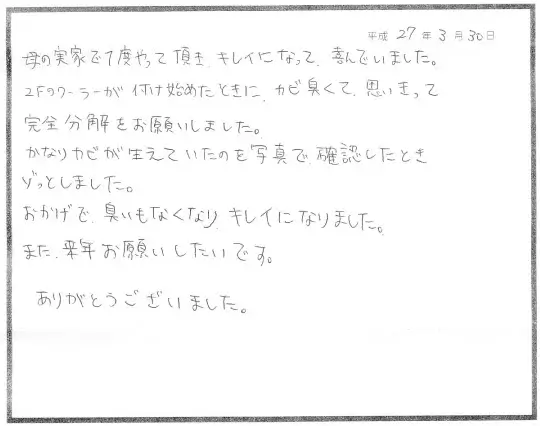 平成 27 年 3 月 30 日
母の実家で1度やって頂き、キレイになって、喜んでいました。
2Fのクーラーが付け始めたときに、カビ臭くて、思いきって
完全分解をお願いしました。
かなりカビが生えていたのを写真で確認したとき
ゾっとしました。
おかげで、臭いもなくなり、キレイになりました。
また、来年お願いしたいです。
ありがとうございました。